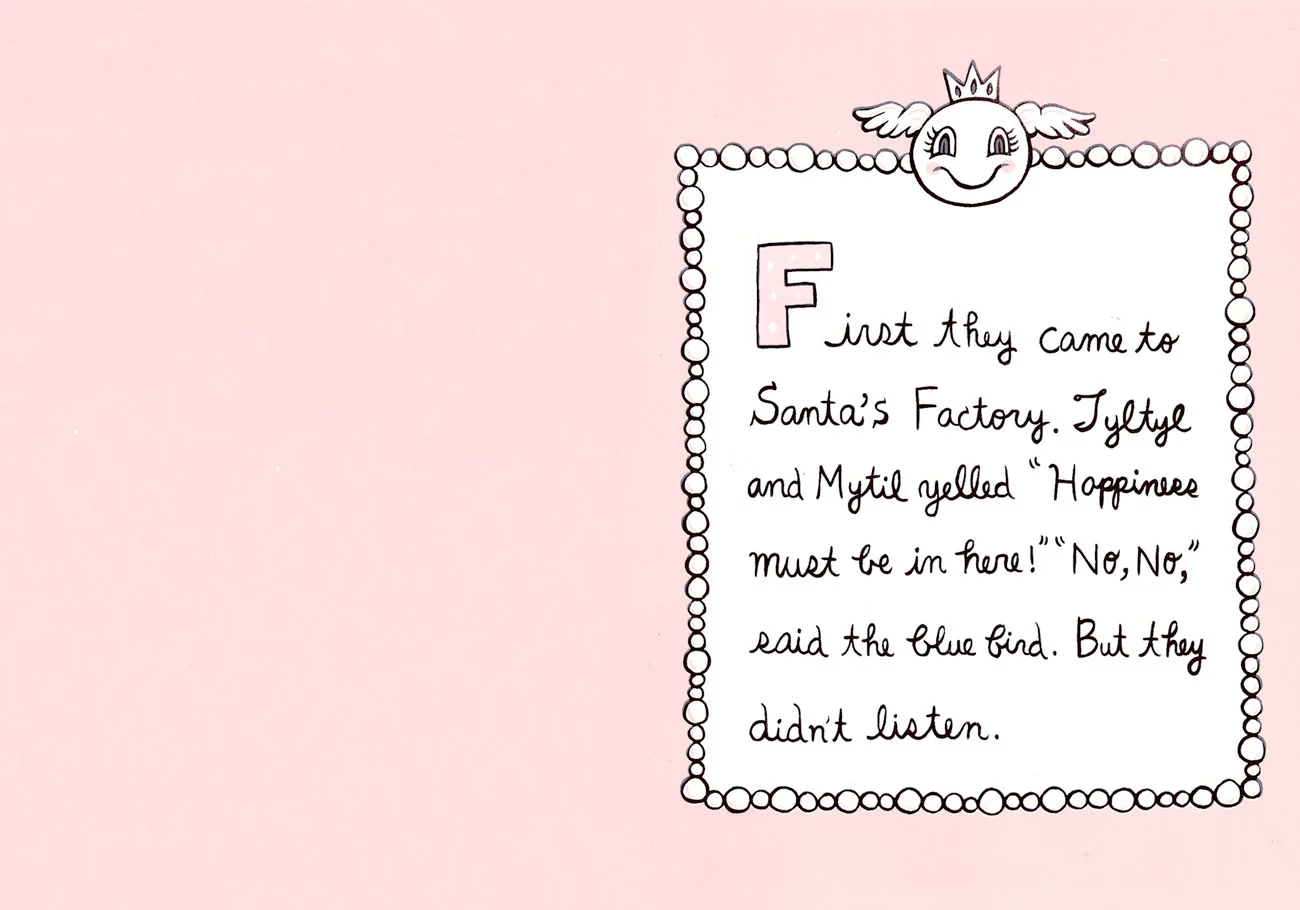 First they came to
Santa's Factory. Tyltyl
and Mytil yelled "Happiness
must be in here!" "No, No,"
said the blue bird. But they
didn't listen.